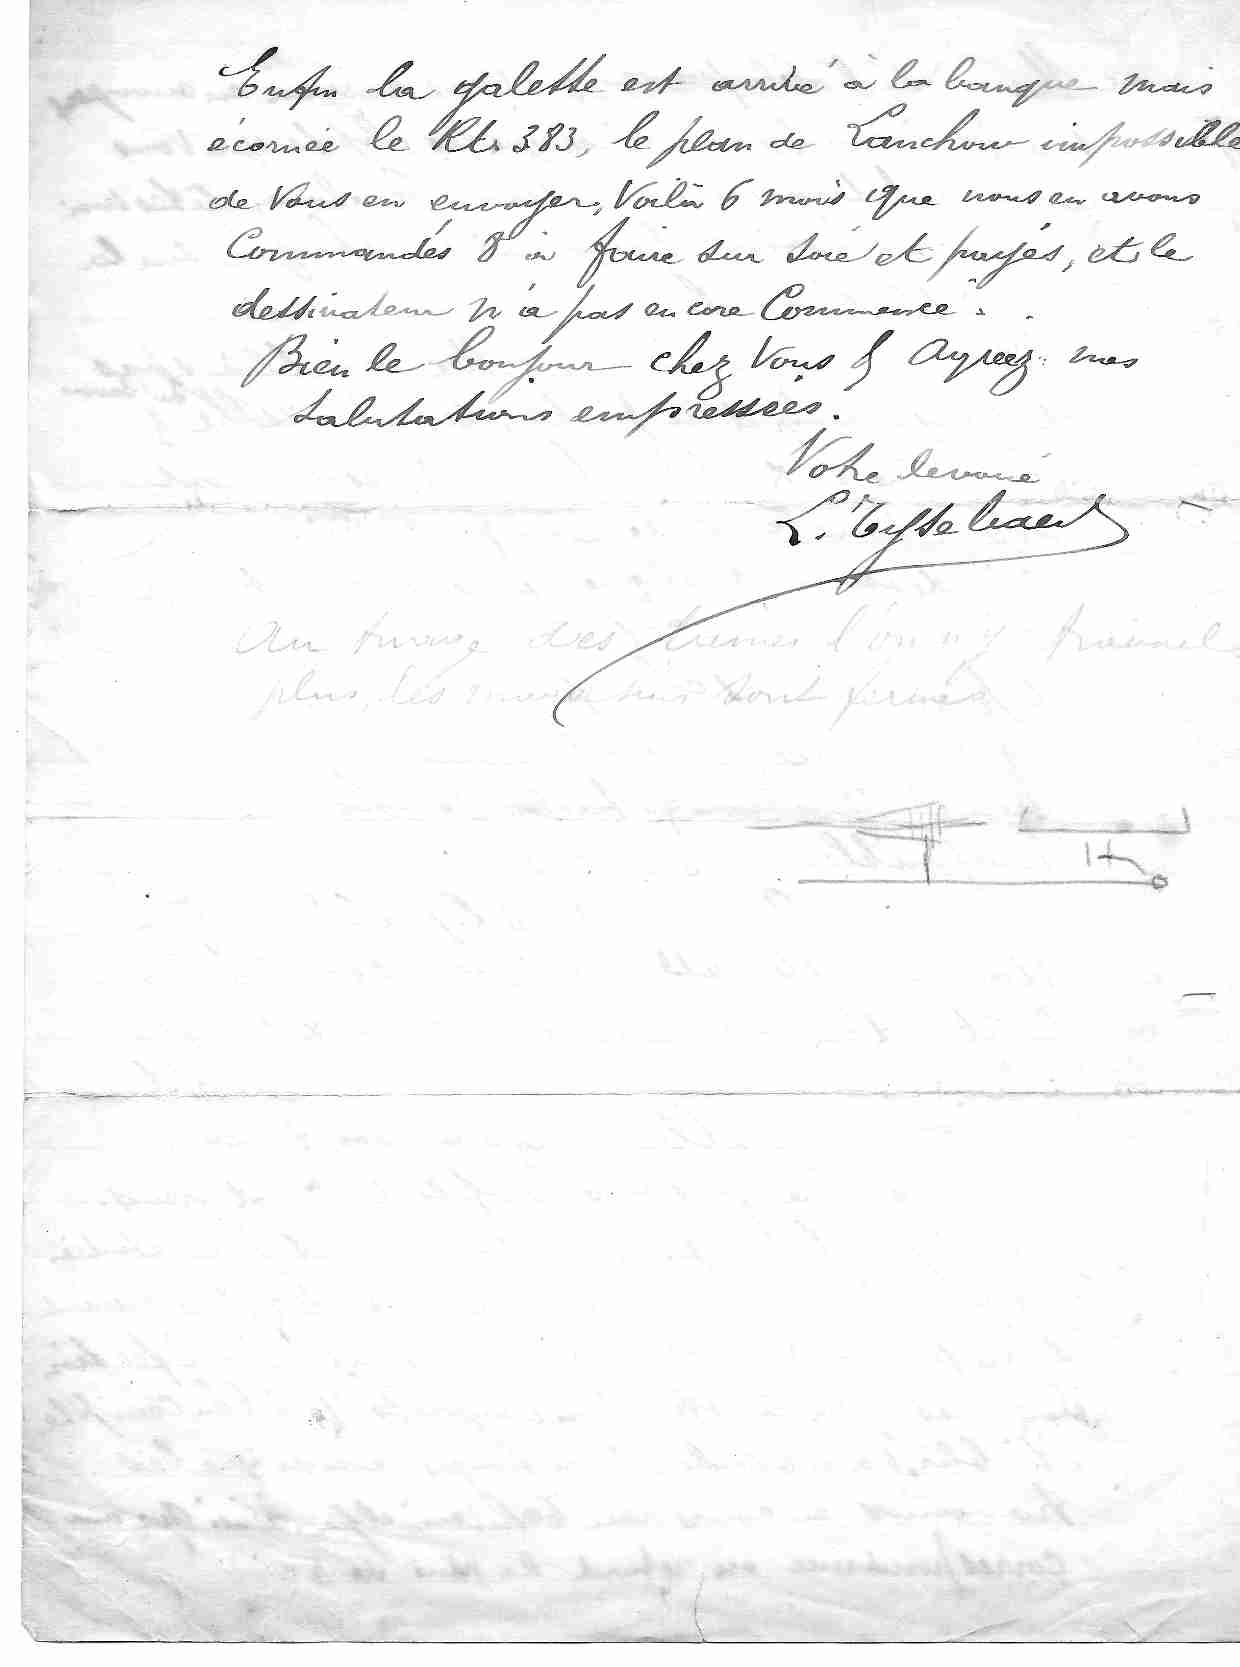 Enfin la galette est arrivé à la banque mais
écornée le Rts. 383, le plan de Lanchow impossible
de Vous en envoyer, Voilà 6 mois que nous en avons
Commandés 8 à faire sur soie et payés, et le
dessinateur n'a pas encore Commencé.
Bien le bonjour chez Vous & Agréez mes
salutations empressées.
Votre devoué
L. Tysebaert
Au des l'on n'y
plus, les sont fermés